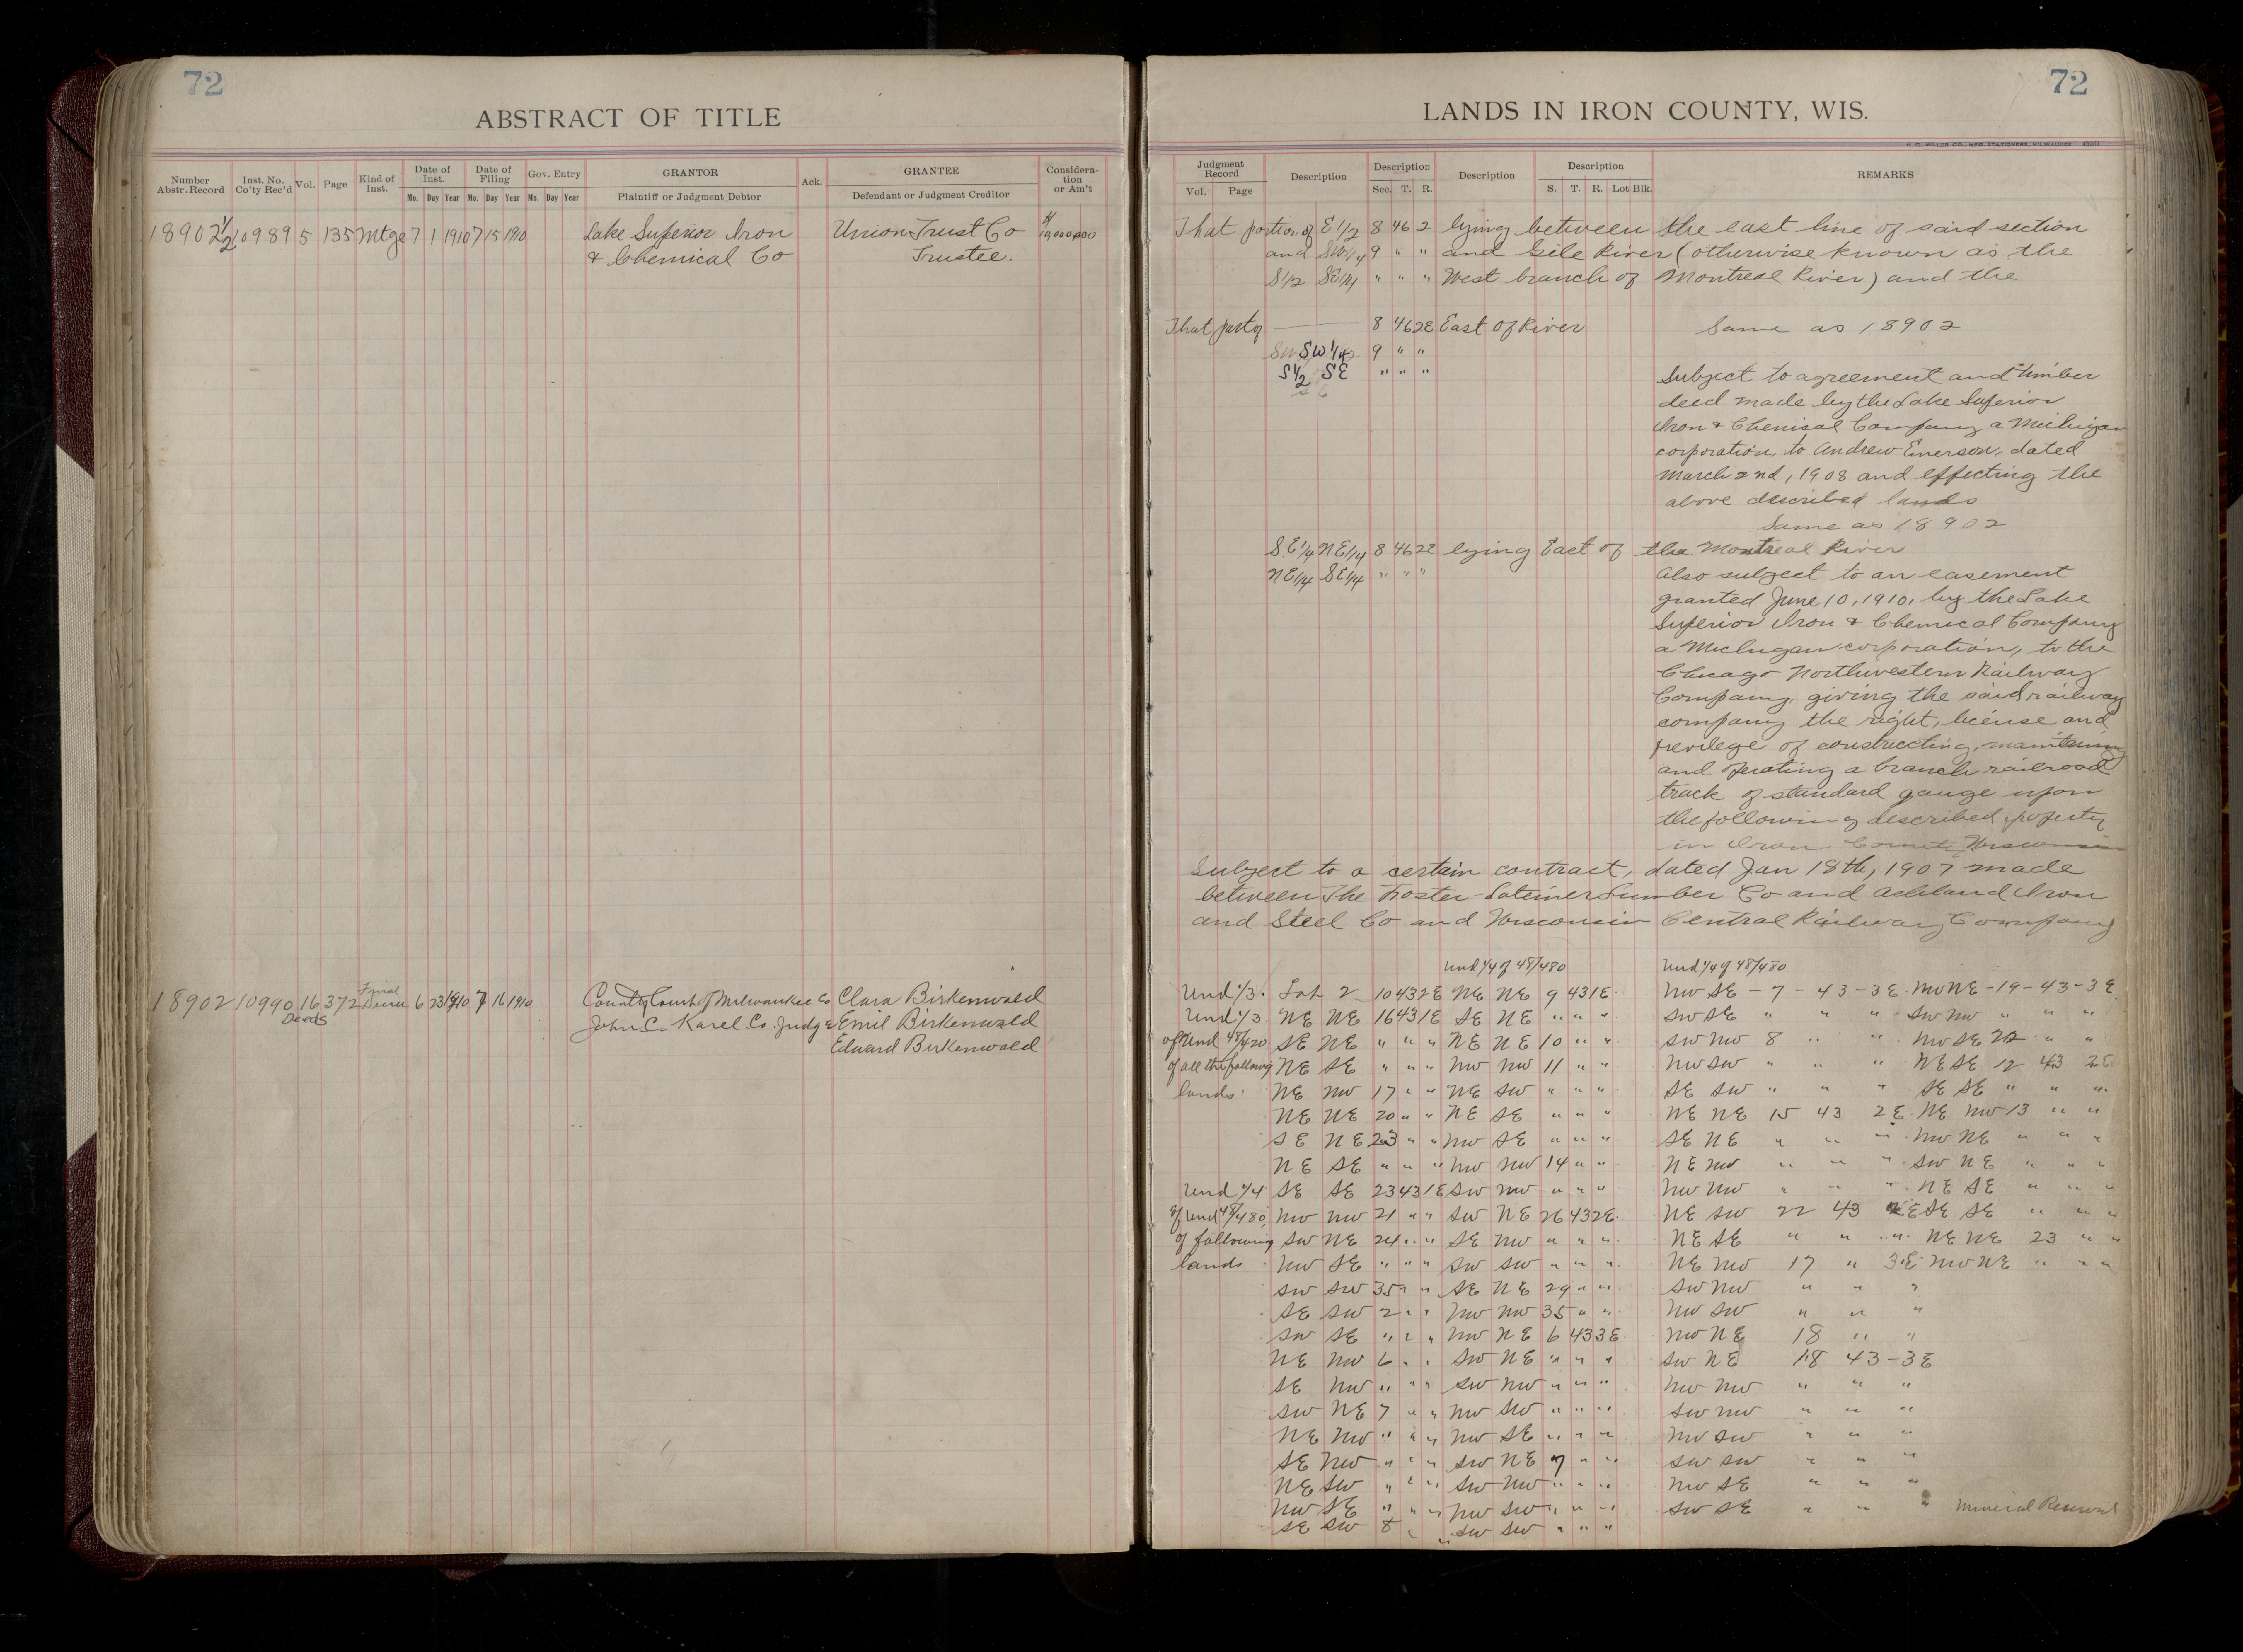 72
ABSTRACT OF TITLE
Number Abstr. Record Inst. No. Co'ty Rec'd Vol. Page Kind of Inst. Date of Inst. Date of Filing Gov. Entry GRANTOR Ack. GRANTEE Consideration or Am't
Mo. Day Year Mo. Day Year Mo. Day Year Plaintiff or Judgment Debtor Defendant or Judgment Creditor
18902 1/2 10989 5 135 Mtge 7 1 1910 7 15 1910 Lake Superior Iron Union Trust Co $10,000,000
& Chemical Co Trustee.
18902 10990 16 372 Final Decree 6 23 1910 7 16 1910 County Court of Milwaukee Co Clara Birkenwald
Deeds John C. Karel Co. Judge Emil Birkenwald
Edward Birkenwald
72
LANDS IN IRON COUNTY, WIS.
H. C. MILLER CO., MFG. STATIONERS, MILWAUKEE
Judgment Record Description Description Description Description REMARKS
Vol. Page Sec. T. R. S. T. R. Lot Blk.
That portion of E 1/2 8 46 2 lying between the east line of said section
and SW 1/4 9 " " and Gile River (otherwise known as the
S 1/2 SE 1/4 " " " West branch of Montreal River) and the
That part of 8 46 2E East of River Same as 18902
SW 1/4 9 " "
S 1/2 SE " " "
Subject to agreement and timber
deed made by the Lake Superior
Iron & Chemical Company a Michigan
corporation, to Andrew Emerson, dated
March 2nd, 1908 and effecting the
above described lands
Same as 18902
SE 1/4 NE 1/4 8 46 2E lying East of the Montreal River
NE 1/4 SE 1/4 " " "
Also subject to an easement
granted June 10, 1910, by the Lake
Superior Iron & Chemical Company
a Michigan corporation, to the
Chicago Northwestern Railway
Company, giving the said railway
company the right, license and
previlege of constructing, maintaining
and operating a branch railroad
track of standard gauge upon
the following described property
in Iron County Wisconsin
Subject to a certain contract, dated Jan 18th, 1907 made
between The Foster Latimer Lumber Co and Ashland Iron
and Steel Co and Wisconsin Central Railway Company
Und 1/4 of 48/480 Und 1/4 of 48/480
Und 1/3. Lot 2 10 43 2E NE NE 9 43 1E. NW SE - 7 - 43 - 3E. NW NE - 19 - 43 - 3E
Und 1/3 NE NE 16 43 1E SE NE " " " SW SE " " " SW NW " " "
of Und 48/420 SE NE " " " NE NE 10 " " SW NW 8 " " NW SE 22 " "
of all the following NE SE " " " NW NW 11 " " NW SW " " " NE SE 12 43 2E
lands NE NW 17 " " NE SW " " " SE SW " " " SE SE " " "
NE NE 20 " " NE SE " " " NE NE 15 43 2E NE NW 13 " "
SE NE 23 " " NW SE " " " SE NE " " " NW NE " " "
NE SE " " " NW NW 14 " " NE NW " " " SW NE " " "
Und 1/4 SE SE 23 43 1E SW NW " " " NW NW " " " NE SE " " "
of Und 48/480, NW NW 21 " " SW NE 26 43 2E. NE SW 22 43 2E SE SE " " "
of following SW NE 24 " " SE NW " " " NE SE " " " NE NE 23 " "
lands NW SE " " " SW SW " " " NE NW 17 " 3E NW NE " " "
SW SW 35 " " SE NE 29 " " SW NW " " "
SE SW 2 " " NW NW 35 " " NW SW " " "
SW SE " " " NW NE 6 43 3E NW NE 18 " "
NE NW 6 " " SW NE " " " SW NE 18 43 - 3E
SE NW " " " SW NW " " " NW NW " " "
SW NE 7 " " NW SW " " " SW NW " " "
NE NW " " " NW SE " " " NW SW " " "
SE NW " " " SW NE 7 " " SW SW " " "
NE SW " " " SW NW " " " NW SE " " "
NW SE " " " NW SW " " " SW SE " " " Mineral Reserved
SE SW 8 " " SW SW " " "